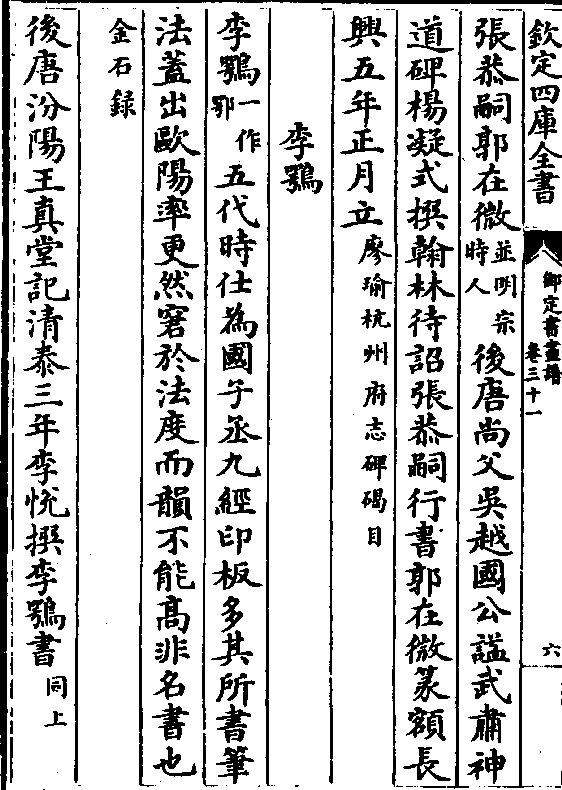 欽定四庫全書
御定書畫譜
卷三十一
六
張恭嗣郭在微並明宗時人後唐尚父吳越國公謚武肅神
道碑楊凝式撰翰林待詔張恭嗣行書郭在微篆額長
興五年正月立廖瑜杭州府志碑碣目
李鶚
李鶚一作郢五代時仕為國子丞九經印板多其所書筆
法蓋出歐陽率更然窘於法度而韻不能高非名書也
金石録
後唐汾陽王真堂記清泰三年李恱撰李鶚書同上